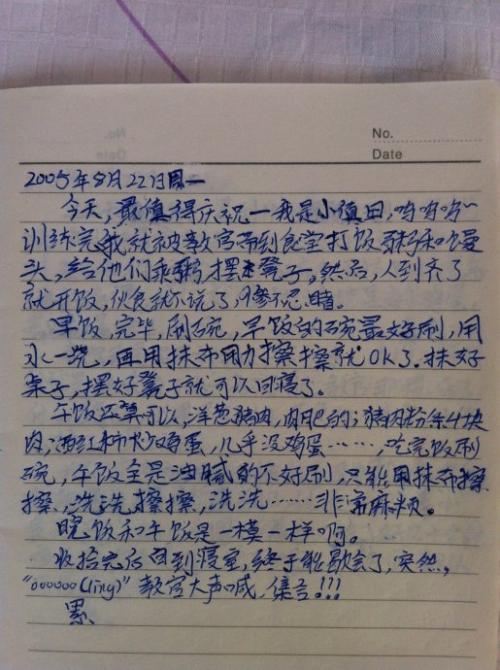 No.
Date
2005年8月22日周一
今天,最值得庆祝—我是小值日,哈哈哈~
训练完我就被教官带到食堂打饭粥和馒
头,给他们乘粥,摆凳子。然后,人到齐了
就开饭,伙食就不说了,惨不忍睹。
早饭,完毕,刷碗,早饭的碗最好刷,用
水一烧,再用抹布用力擦擦就OK了.抹好
桌子,摆好凳子就可以回寝了。
午饭还算可以,洋葱猪肉,肉肥的;猪肉粉条4块
肉;西红柿炒鸡蛋,几乎没鸡蛋……,吃完饭刷
碗,午饭全是油腻的不好刷,只能用抹布擦
擦、洗洗、擦擦,洗洗……非常麻烦。
晚饭和午饭是一模一样啊。
收拾完后回到寝室,终于能歇会了,突然,
"oooooo(ling)"教官大声喊,集合!!!
累